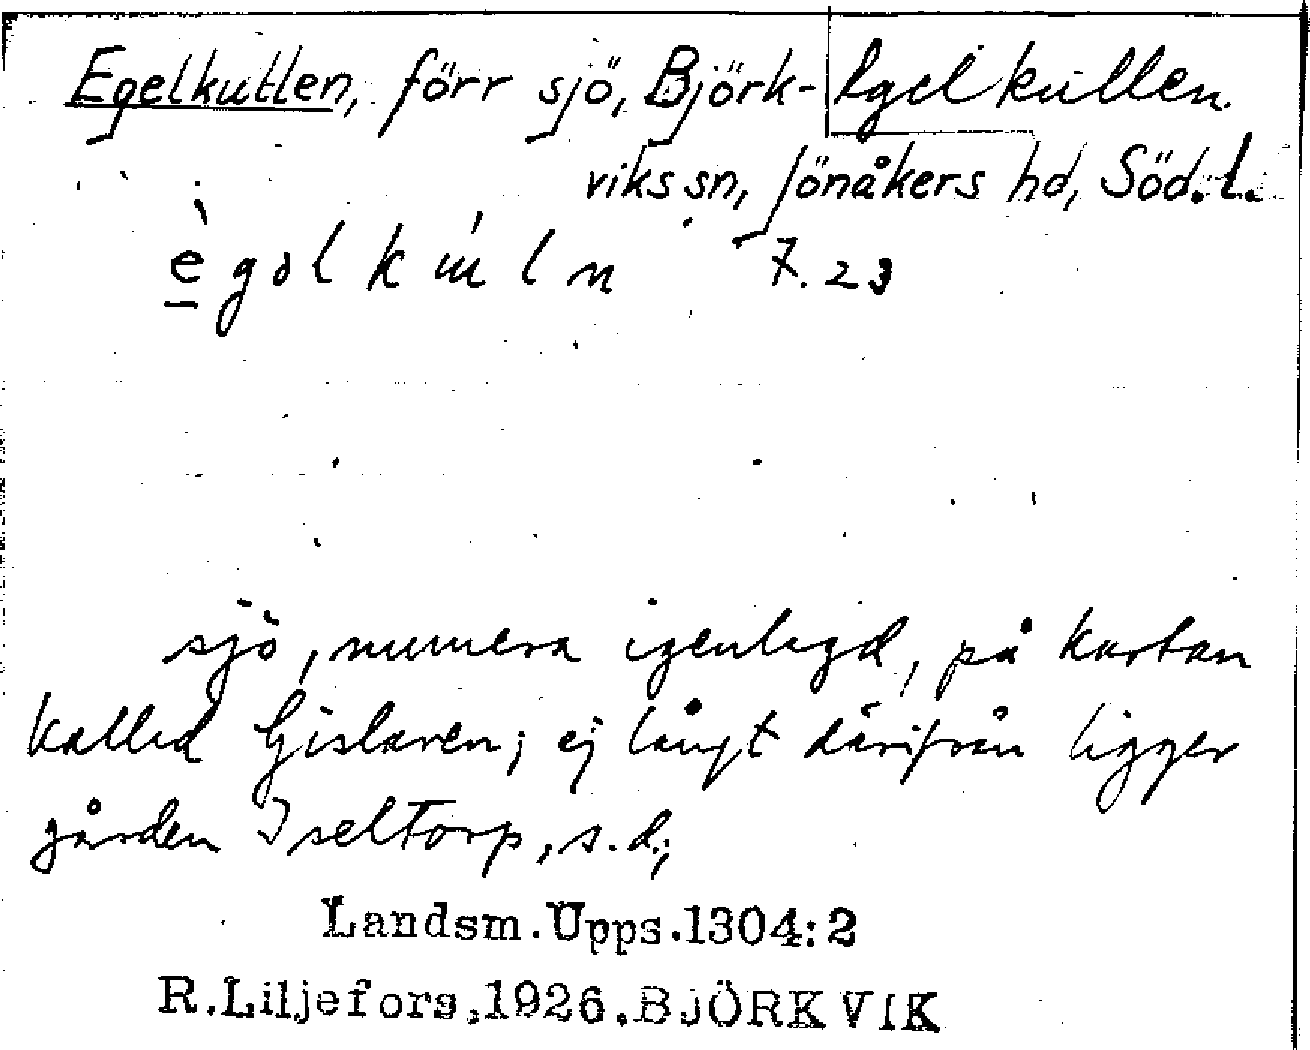 Egelkullen, förr sjö, Björk- Egelkullen.
viks sn, Jönåkers hd, Söd.l.
è g ə l k ú l n 7.23
sjö, numera igenlagd, på kartan
kallad Gislaren; ej långt därifrån ligger
gården Iseltorp, s. d.;
Landsm.Upps.1304:2
R.Liljefors,1926.BJÖRKVIK